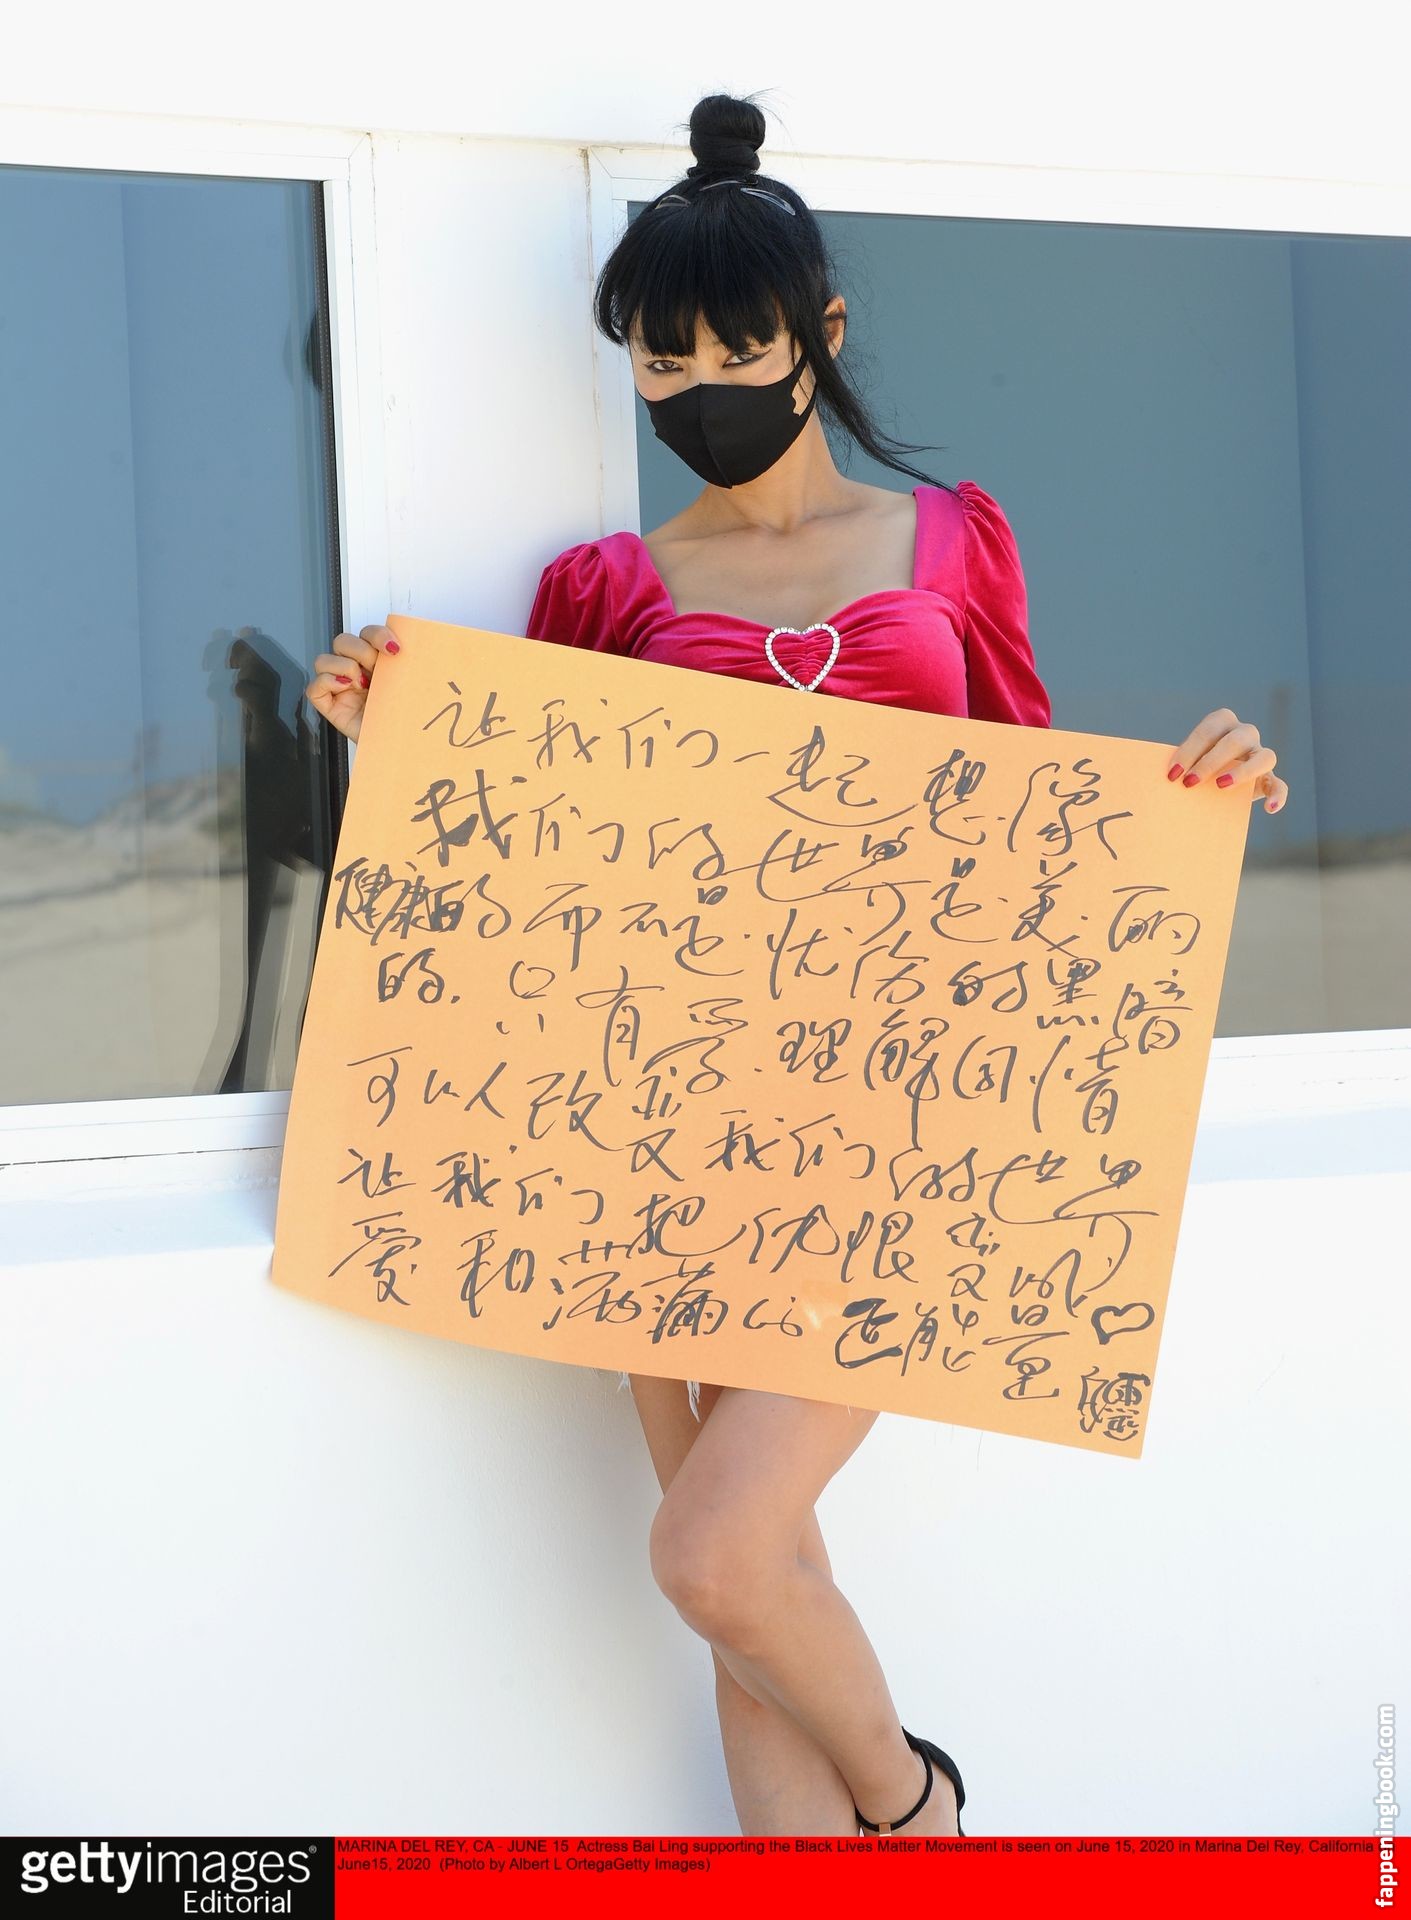 让我们一起想像
我们的世界是美丽
健康的而不是忧伤的黑暗
的. 只有爱.理解同情
可以改变我们的世界
让我们把仇恨变成
爱和洒满的正能量♡
gettyimages®
Editorial
MARINA DEL REY, CA - JUNE 15 Actress Bai Ling supporting the Black Lives Matter Movement is seen on June 15, 2020 in Marina Del Rey, California
June15, 2020 (Photo by Albert L OrtegaGetty Images)
fappeningbook.com